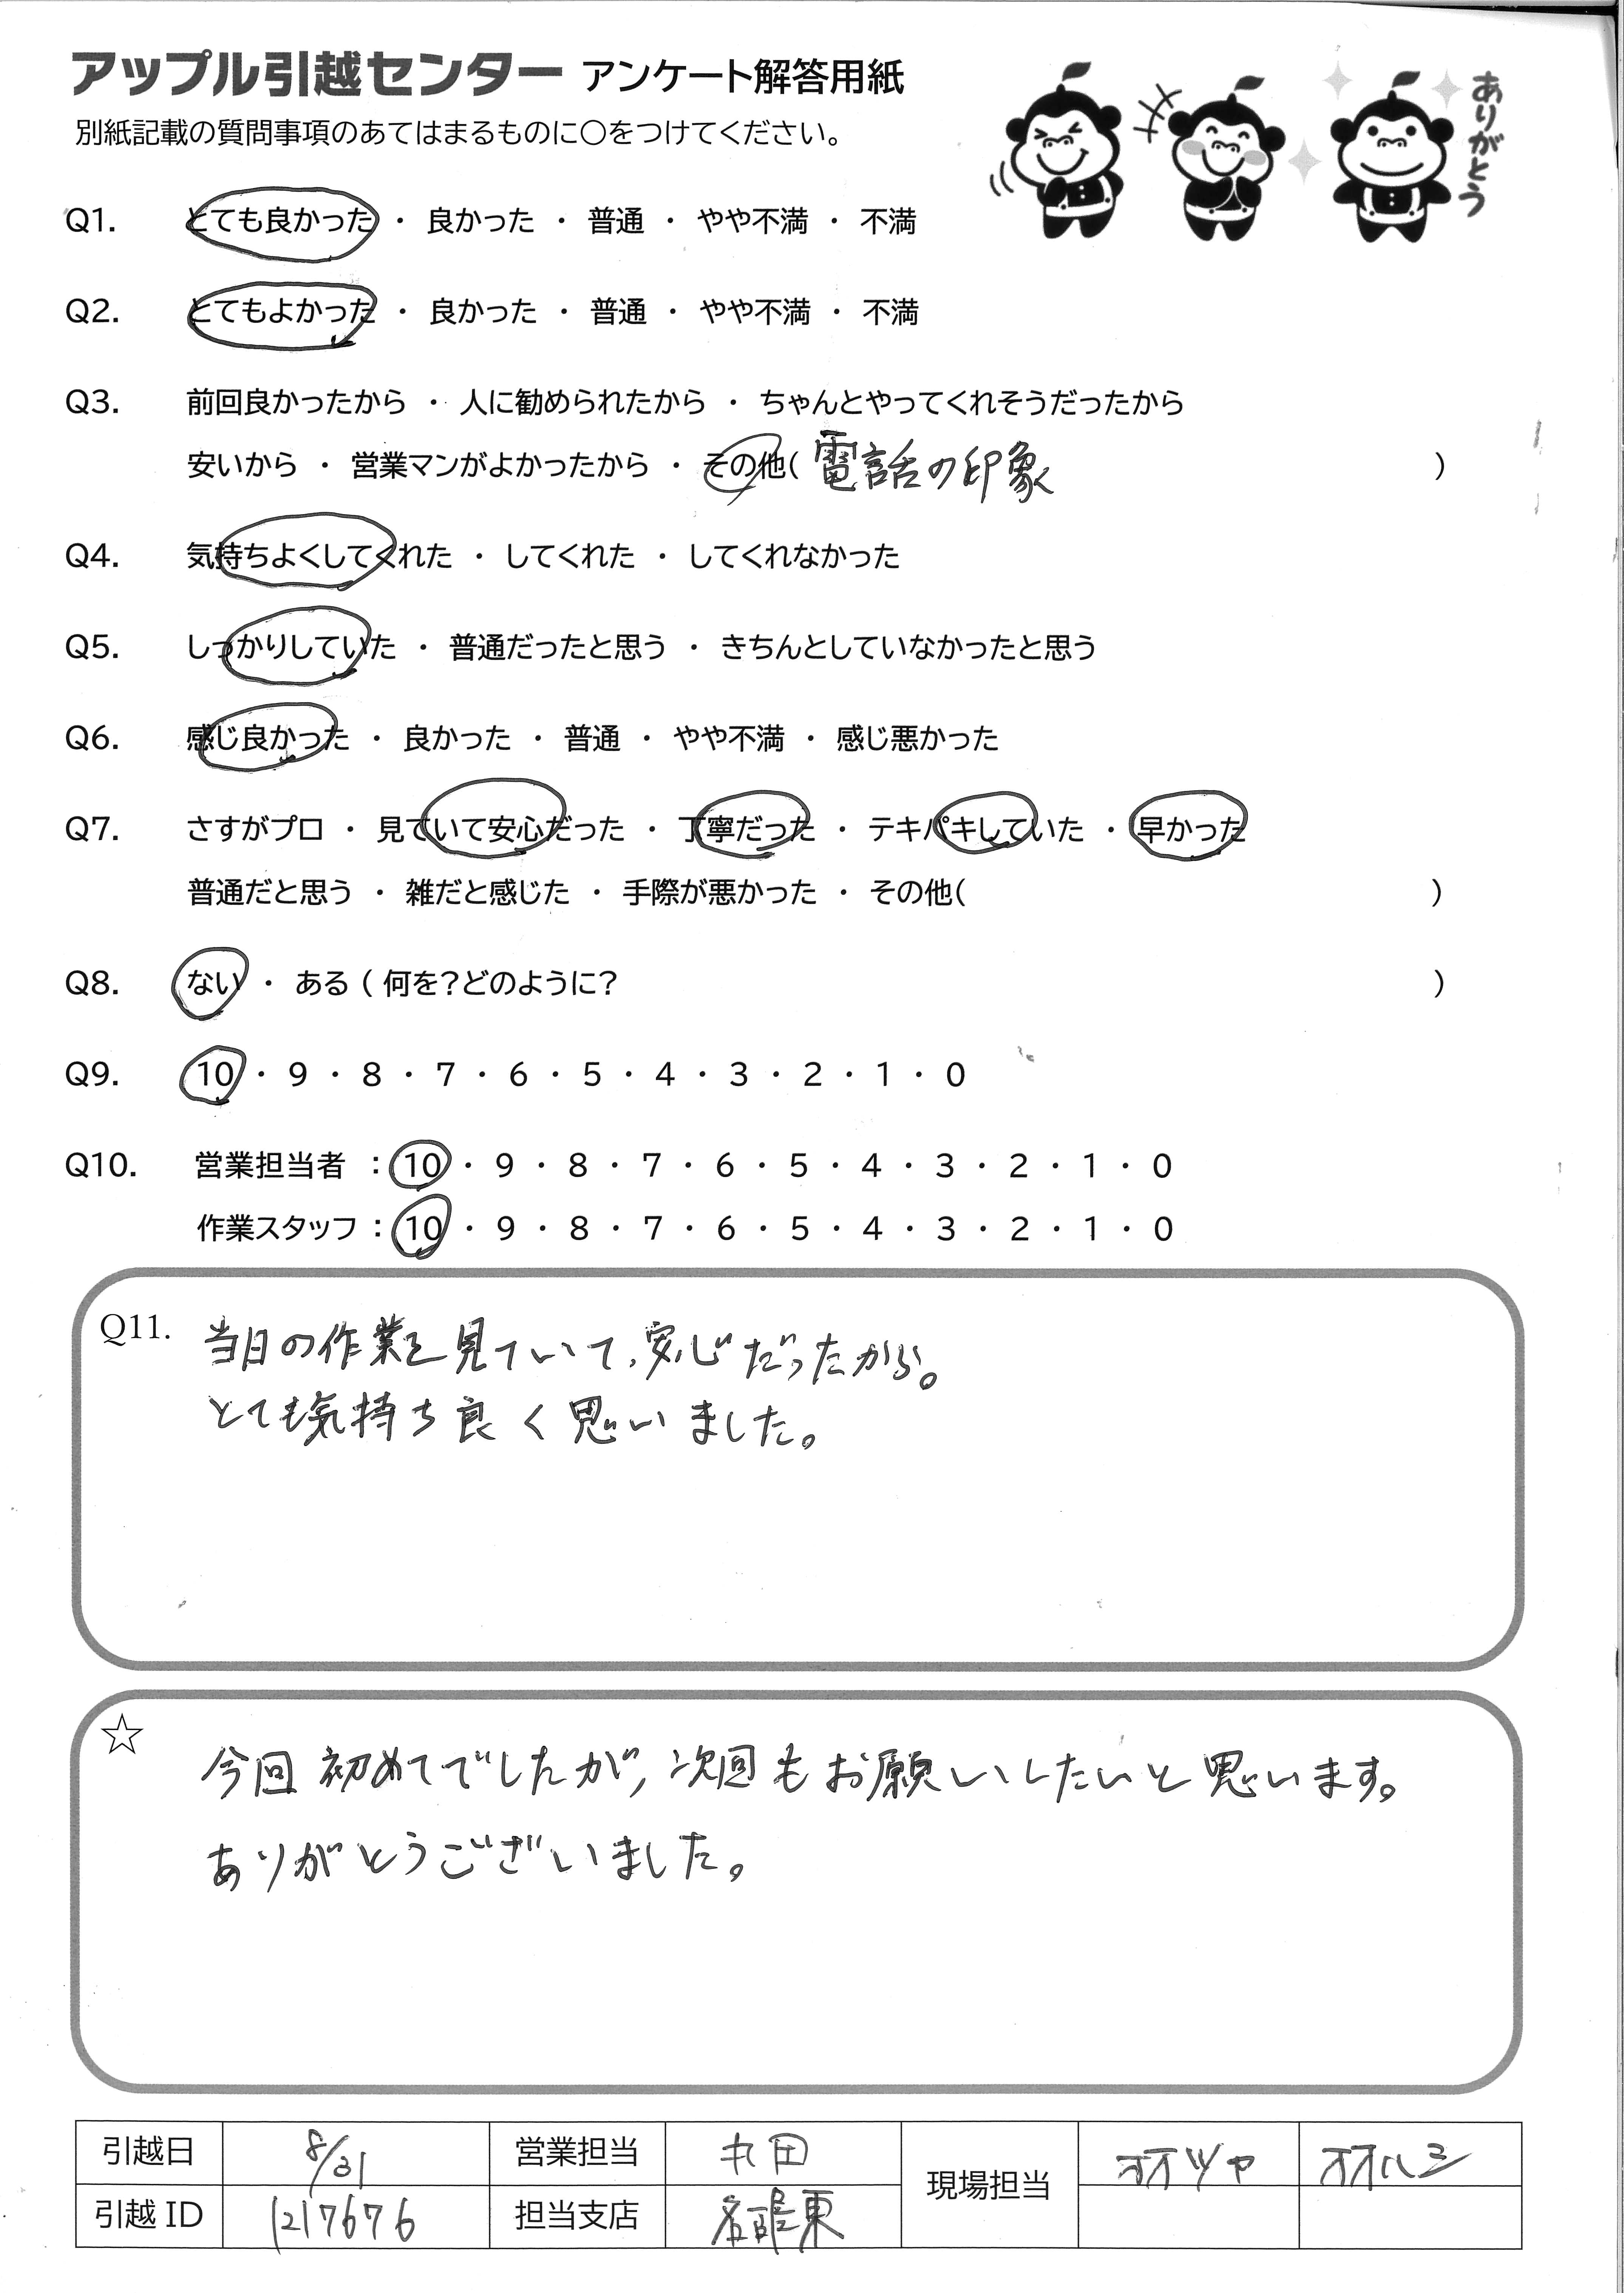 アップル引越センター アンケート解答用紙
別紙記載の質問事項のあてはまるものに○をつけてください。
ありがとう
Q1. とても良かった ・ 良かった ・ 普通 ・ やや不満 ・ 不満
Q2. とてもよかった ・ 良かった ・ 普通 ・ やや不満 ・ 不満
Q3. 前回良かったから ・ 人に勧められたから ・ ちゃんとやってくれそうだったから
安いから ・ 営業マンがよかったから ・ その他( 電話の印象 )
Q4. 気持ちよくしてくれた ・ してくれた ・ してくれなかった
Q5. しっかりしていた ・ 普通だったと思う ・ きちんとしていなかったと思う
Q6. 感じ良かった ・ 良かった ・ 普通 ・ やや不満 ・ 感じ悪かった
Q7. さすがプロ ・ 見ていて安心だった ・ 丁寧だった ・ テキパキしていた ・ 早かった
普通だと思う ・ 雑だと感じた ・ 手際が悪かった ・ その他( )
Q8. ない ・ ある ( 何を?どのように? )
Q9. 10 ・ 9 ・ 8 ・ 7 ・ 6 ・ 5 ・ 4 ・ 3 ・ 2 ・ 1 ・ 0
Q10. 営業担当者 : 10 ・ 9 ・ 8 ・ 7 ・ 6 ・ 5 ・ 4 ・ 3 ・ 2 ・ 1 ・ 0
作業スタッフ : 10 ・ 9 ・ 8 ・ 7 ・ 6 ・ 5 ・ 4 ・ 3 ・ 2 ・ 1 ・ 0
Q11. 当日の作業を見ていて、安心だったから。
とても気持ち良く思いました。
☆ 今回初めてでしたが、次回もお願いしたいと思います。
ありがとうございました。
引越日 8/31 営業担当 丸田 現場担当 オオツヤ オオハシ
引越ID 1217676 担当支店 名古屋東